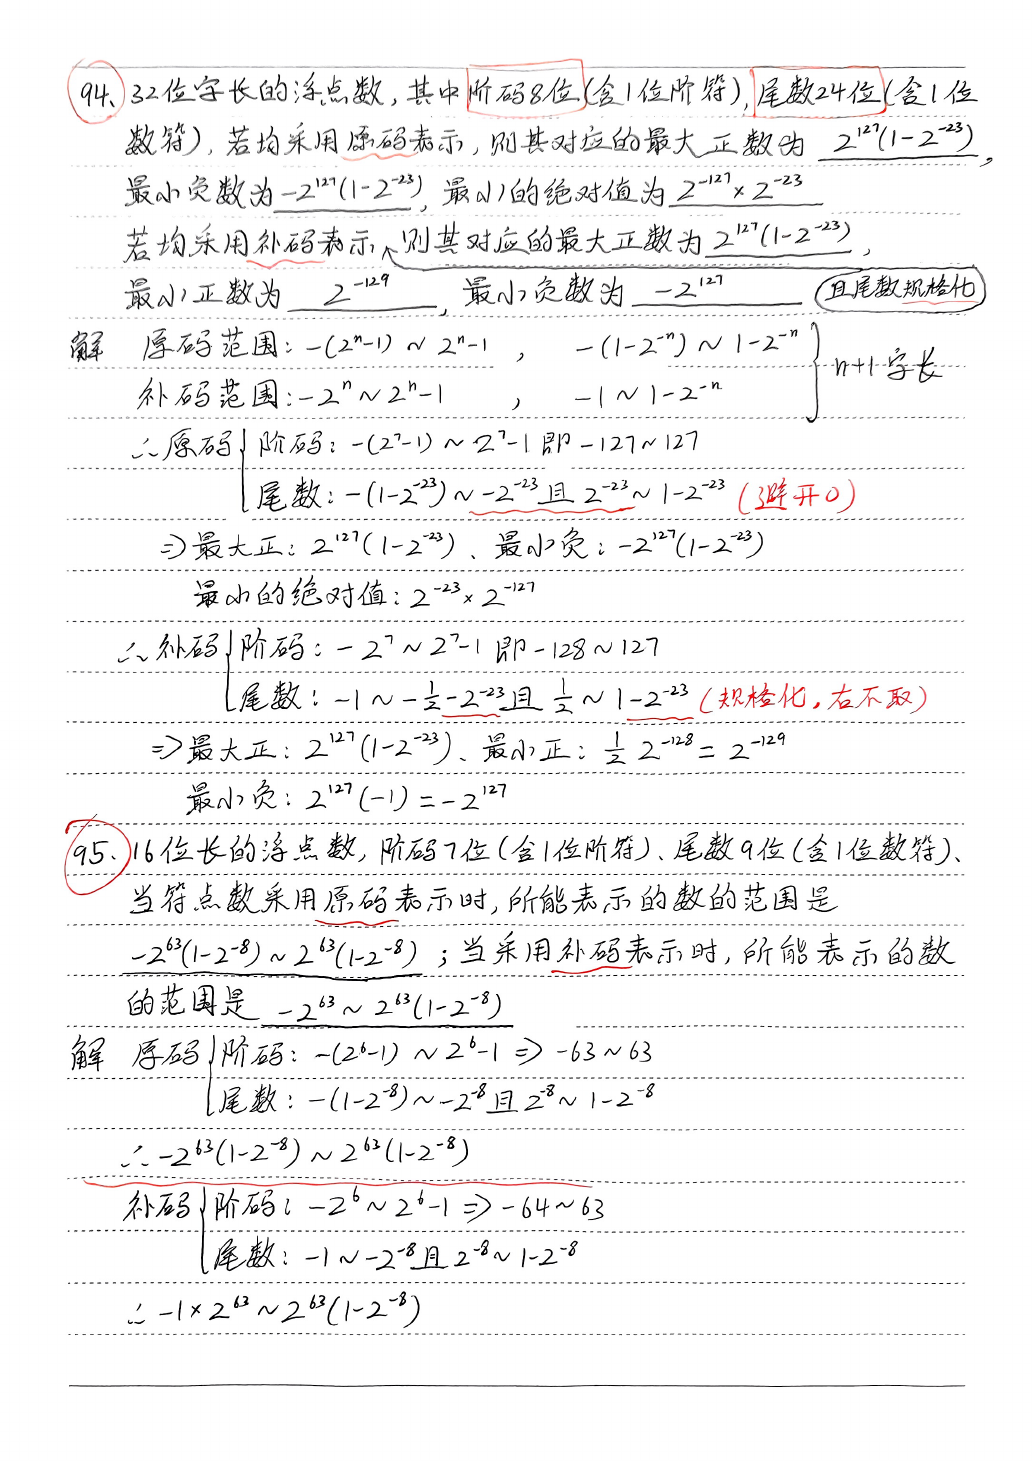 94、32位字长的浮点数，其中阶码8位(含1位阶符)，尾数24位(含1位
数符)，若均采用原码表示，则其对应的最大正数为 2¹²⁷(1-2⁻²³)，
最小负数为 -2¹²⁷(1-2⁻²³)，最小的绝对值为 2⁻¹²⁷×2⁻²³
若均采用补码表示，则其对应的最大正数为 2¹²⁷(1-2⁻²³)，
最小正数为 2⁻¹²⁹，最小负数为 -2¹²⁷ 且尾数规格化
解 原码范围：-(2ⁿ-1) ~ 2ⁿ-1 ， -(1-2⁻ⁿ) ~ 1-2⁻ⁿ
补码范围：-2ⁿ ~ 2ⁿ-1 ， -1 ~ 1-2⁻ⁿ } n+1字长
∴原码{阶码：-(2⁷-1) ~ 2⁷-1 即 -127~127
尾数：-(1-2⁻²³) ~ -2⁻²³且 2⁻²³ ~ 1-2⁻²³ (避开0)
⇒最大正：2¹²⁷(1-2⁻²³)、最小负：-2¹²⁷(1-2⁻²³)
最小的绝对值：2⁻²³×2⁻¹²⁷
∴补码{阶码：-2⁷ ~ 2⁷-1 即 -128~127
尾数：-1 ~ -½-2⁻²³且 ½ ~ 1-2⁻²³ (规格化，右不取)
⇒最大正：2¹²⁷(1-2⁻²³)、最小正：½ 2⁻¹²⁸ = 2⁻¹²⁹
最小负：2¹²⁷(-1) = -2¹²⁷
95、16位长的浮点数，阶码7位(含1位阶符)、尾数9位(含1位数符)、
当符点数采用原码表示时，所能表示的数的范围是
-2⁶³(1-2⁻⁸) ~ 2⁶³(1-2⁻⁸)；当采用补码表示时，所能表示的数
的范围是 -2⁶³ ~ 2⁶³(1-2⁻⁸)
解 原码{阶码：-(2⁶-1) ~ 2⁶-1 ⇒ -63~63
尾数：-(1-2⁻⁸) ~ -2⁻⁸且 2⁻⁸ ~ 1-2⁻⁸
∴ -2⁶³(1-2⁻⁸) ~ 2⁶³(1-2⁻⁸)
补码{阶码：-2⁶ ~ 2⁶-1 ⇒ -64~63
尾数：-1 ~ -2⁻⁸且 2⁻⁸ ~ 1-2⁻⁸
∴ -1×2⁶³ ~ 2⁶³(1-2⁻⁸)